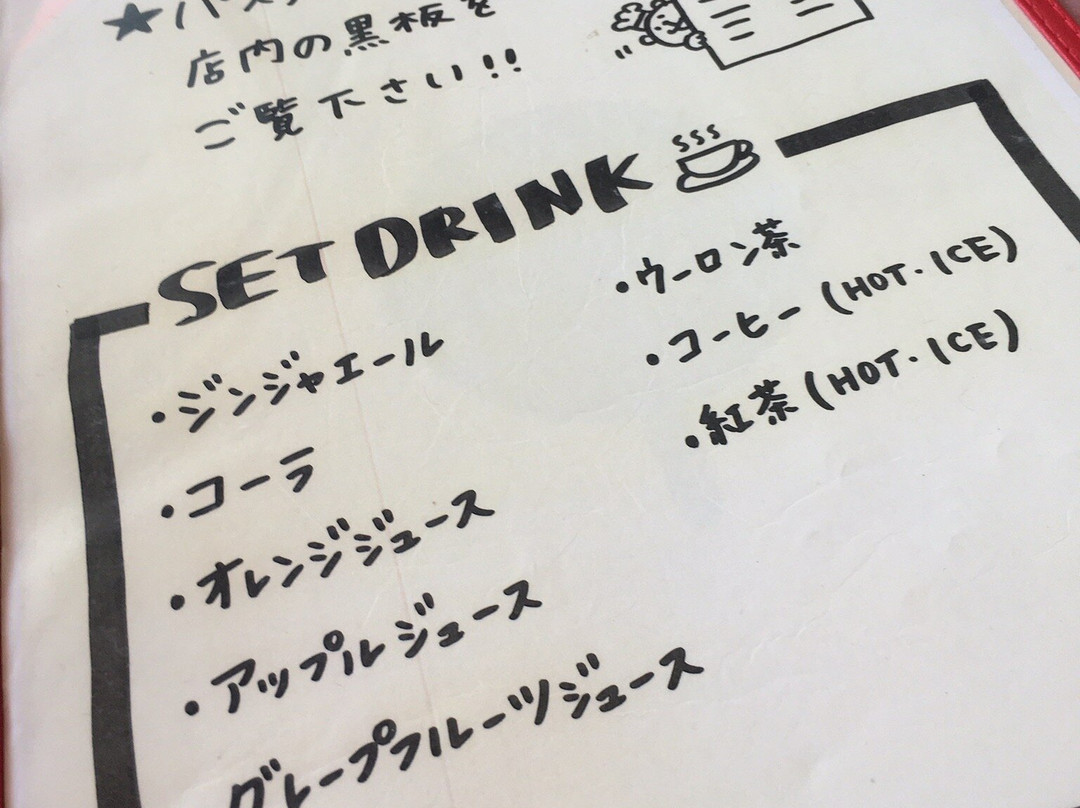 店内の黒板を
ご覧下さい!!
SET DRINK
・ジンジャエール
・コーラ
・オレンジジュース
・アップルジュース
グレープフルーツジュース
・ウーロン茶
・コーヒー (HOT・ICE)
・紅茶 (HOT・ICE)